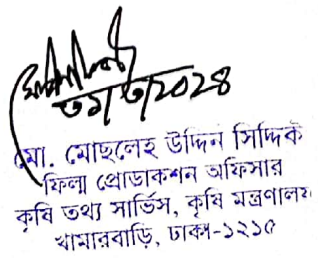 ৩১/৩/২০২৪
মো. মোছলেহ উদ্দিন সিদ্দিক
ফিল্ম প্রোডাকশন অফিসার
কৃষি তথ্য সার্ভিস, কৃষি মন্ত্রণালয়
খামারবাড়ি, ঢাকা-১২১৫